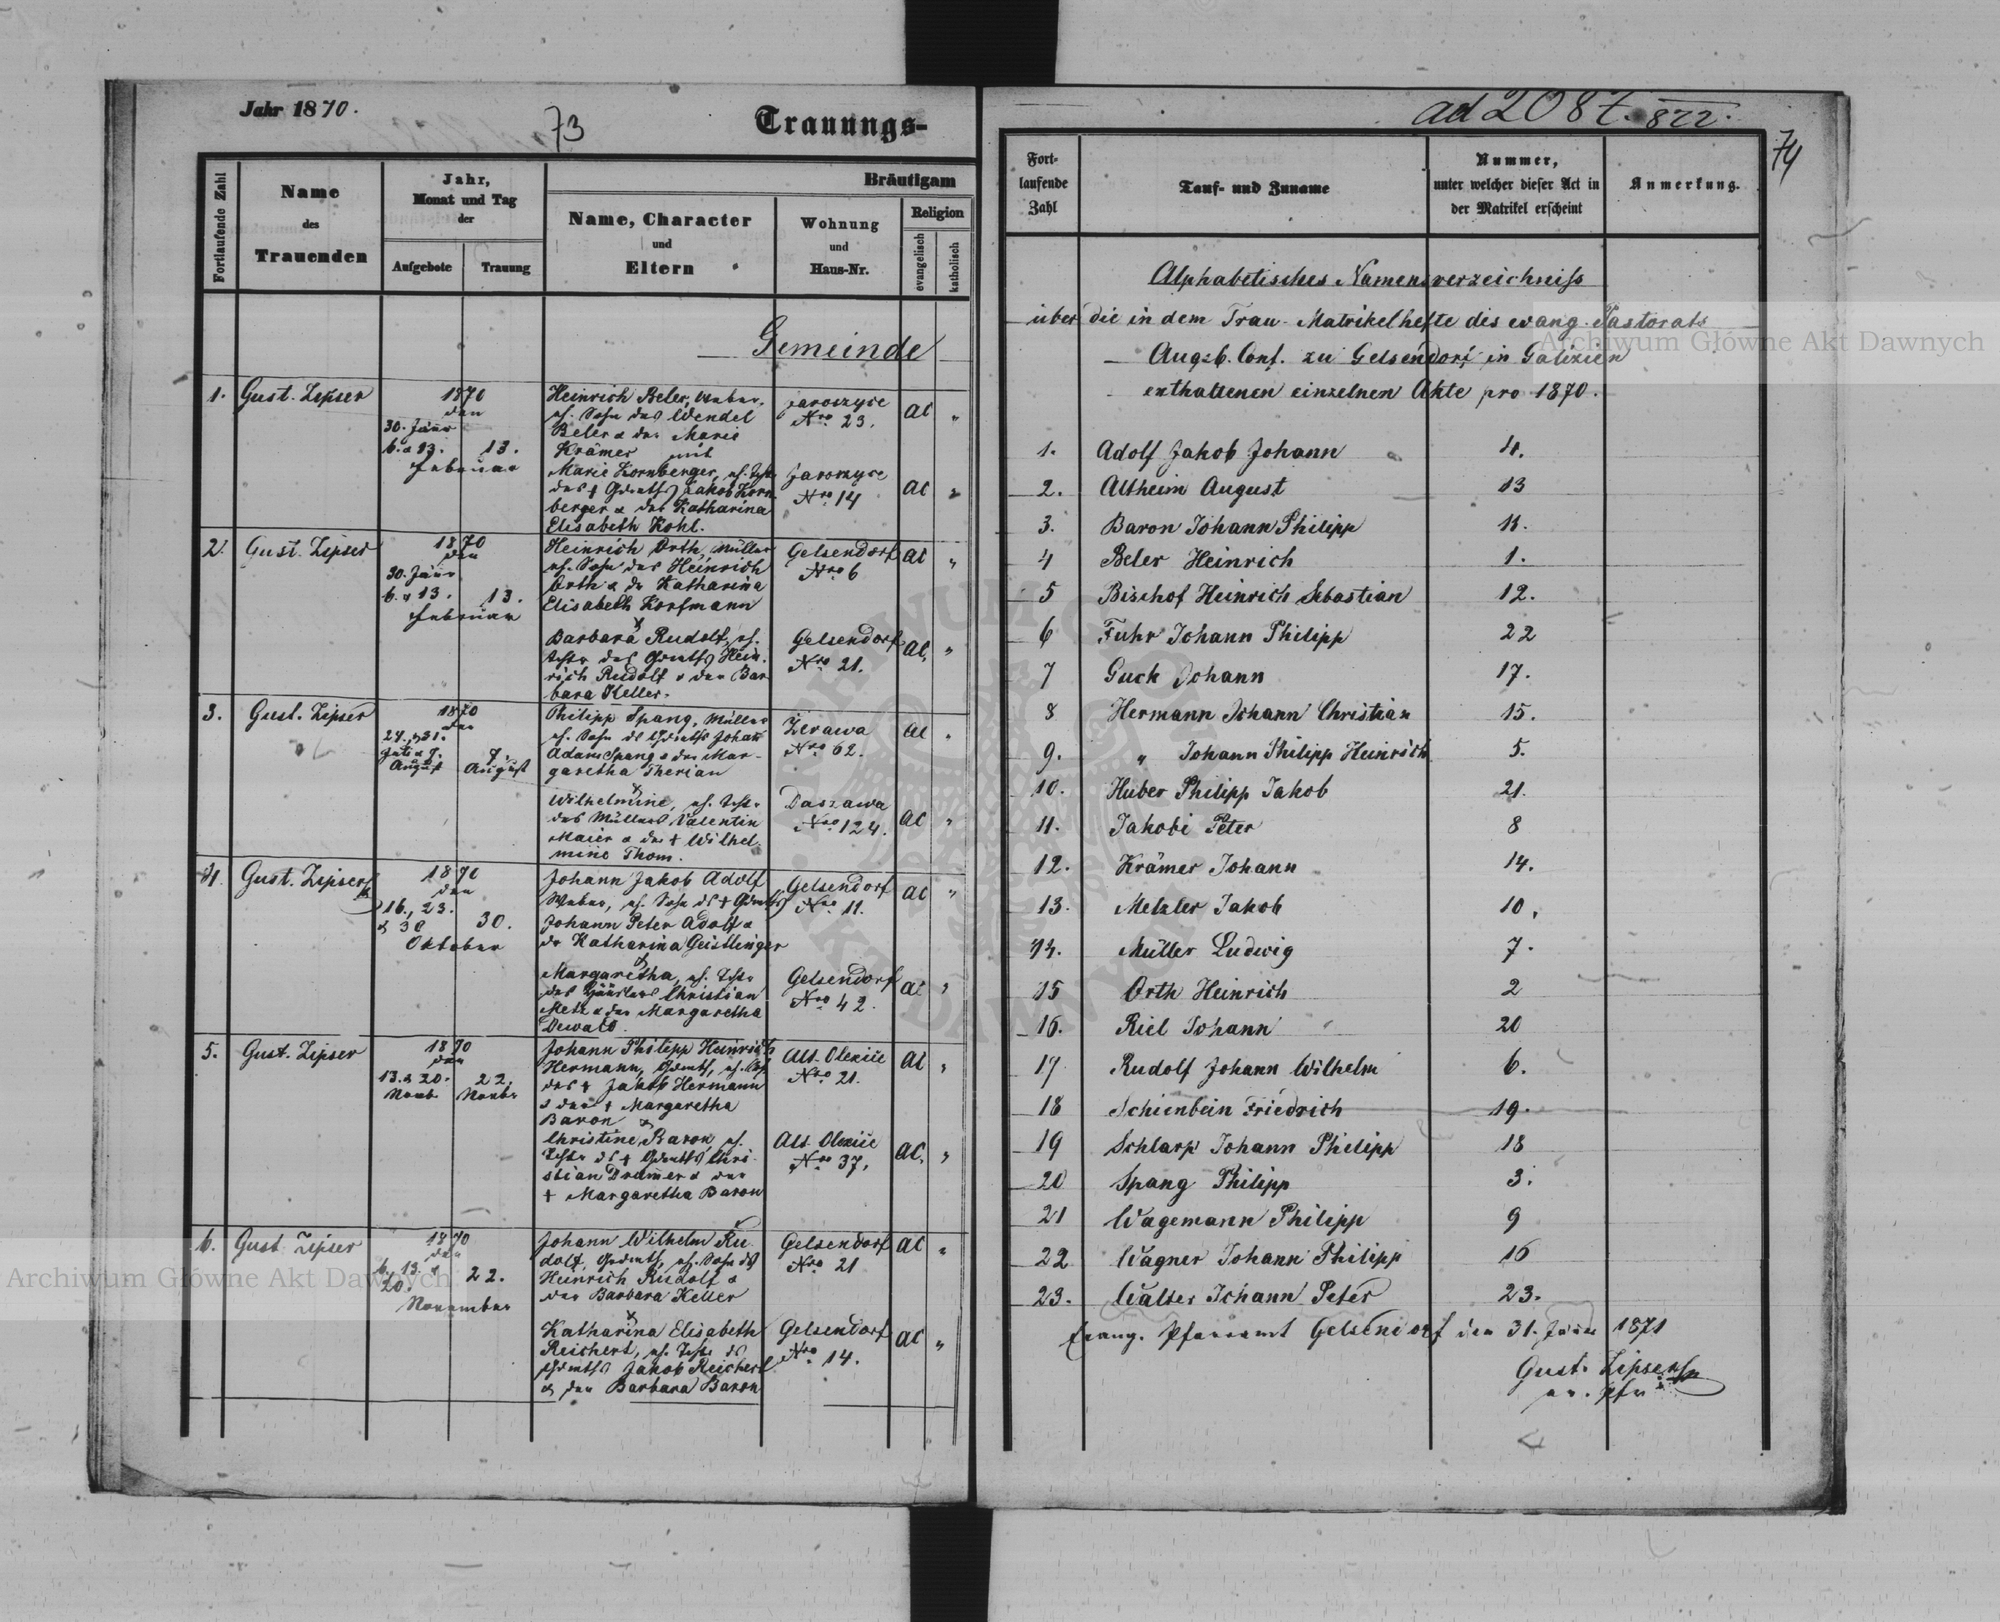 Jahr 1870.
73
Trauungs-
Fortlaufende Zahl
Name
des
Trauenden
Jahr,
Monat und Tag
der
Aufgebote
Trauung
Bräutigam
Name, Character
und
Eltern
Wohnung
und
Haus-Nr.
Religion
evangelisch
katholisch
Gemeinde
1. Gust. Zipser
1870
den
30. Jänr
6. & 13. 13.
Februar
Heinrich Beler, Weber,
eh. Sohn des Wendel
Beler & der Marie
Krämer mit
Jaroszyce
Nro 23.
AC "
Marie Kornberger, eh. Tocht.
des † Grdwths Jakob Korn-
berger & der Katharina
Elisabeth Kohl.
Jaroszyce
Nro 14
AC "
2. Gust. Zipser
1870
den
30. Jänr
6. & 13. 13.
Februar
Heinrich Orth, Müller
eh. Sohn des Heinrich
Orth & der Katharina
Elisabeth Korfmann
&
Gelsendorf
Nro 6
AC "
Barbara Rudolf, eh.
Tochter des Grdwths Hein-
rich Rudolf & der Bar-
bara Keller.
Gelsendorf
Nro 21.
AC "
3. Gust. Zipser
1870
den
24., 31.
Juli & 7. 7.
August August
Philipp Spang, Müller
eh. Sohn des Grdwths Johann
Adam Spang & der Mar-
garetha Therian
&
Zerawa
Nro 62.
AC "
Wilhelmine, eh. Tocht.
des Müllers Valentin
Maier & der † Wilhel-
mine Thom.
Daszawa
Nro 124.
AC "
4. Gust. Zipser
1870
den
16., 23.
& 30 30.
Oktober
Johann Jakob Adolf
Weber, eh. Sohn des † Grdwths
Johann Peter Adolf &
der Katharina Geistlinger
&
Gelsendorf
Nro 11.
AC "
Margaretha, eh. Tocht.
des Häuslers Christian
Metz & der Margaretha
Dewald.
Gelsendorf
Nro 42.
AC "
5. Gust. Zipser
1870
den
13. & 20. 22.
Novb. Novbr
Johann Philipp Heinrich
Hermann, Grdwth, eh. Sohn
des † Jakob Hermann
& der † Margaretha
Baron &
Alt Olexice
Nro 21.
AC "
Christine Baron, eh.
Tocht. des † Grdwths Chri-
stian Drumer & der
† Margaretha Baron
Alt Olexice
Nro 37.
AC "
6. Gust Zipser
1870
den
6., 13. &
20. 22.
November
Johann Wilhelm Ru-
dolf, Grdwth, eh. Sohn des
Heinrich Rudolf &
der Barbara Keller
&
Gelsendorf
Nro 21
AC "
Katharina Elisabeth
Reichert, eh. Tocht. des
Grdwths Jakob Reichert
& der Barbara Baron
Gelsendorf
Nro 14.
AC "
ad 2087. 822.
74
Fort-
laufende
Zahl
Tauf- und Zuname
Nummer,
unter welcher dieser Act in
der Matrikel erscheint
Anmerkung.
Alphabetisches Namensverzeichniss
über die in dem Trau-Matrikelhefte des evang. Pastorats
Augsb. Conf. zu Gelsendorf in Galizien
enthaltenen einzelnen Akte pro 1870.
1. Adolf Jakob Johann 4.
2. Altheim August 13
3. Baron Johann Philipp 11.
4 Beler Heinrich 1.
5 Bischof Heinrich Sebastian 12.
6 Fuhr Johann Philipp 22
7 Guck Johann 17.
8 Hermann Johann Christian 15.
9. " Johann Philipp Heinrich 5.
10. Huber Philipp Jakob 21.
11. Jakobi Peter 8
12. Krämer Johann 14.
13. Metzler Jakob 10.
14. Müller Ludwig 7.
15 Orth Heinrich 2
16. Riel Johann 20
17 Rudolf Johann Wilhelm 6.
18 Schienbein Friedrich 19.
19 Schlarp Johann Philipp 18
20 Spang Philipp 3.
21 Wagemann Philipp 9
22 Wagner Johann Philipp 16
23. Walter Johann Peter 23.
Evang. Pfarramt Gelsendorf den 31. Jänr 1871
Gust. Zipser
ev. Pfr
Archiwum Główne Akt Dawnych
Archiwum Główne Akt Dawnych